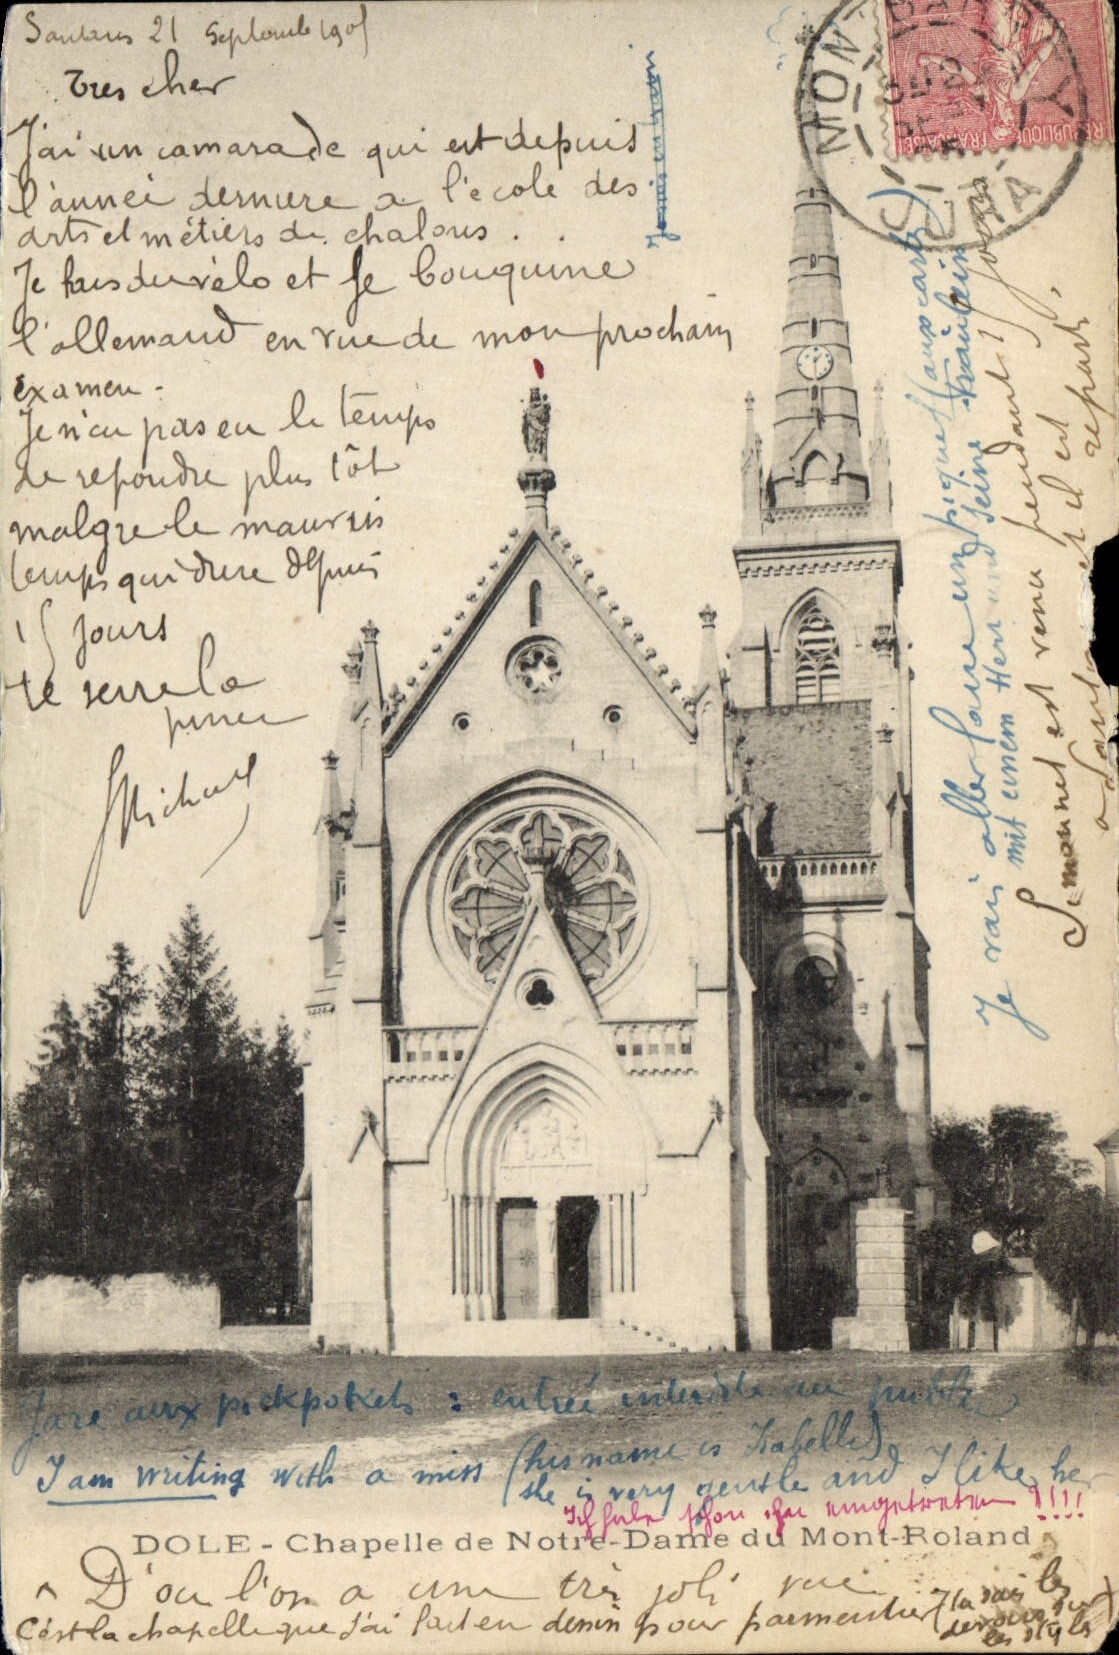 21 Septembre 190
Tres cher
J'ai un camarade qui est depuis
l'année derniere a l'école des
arts et métiers de chalons . .
Je fais du vélo et je bouquine
l'allemand en vue de mon prochain
examen -
Je n'ai pas eu le temps
de repondre plus tôt
malgre le mauvais
temps qui dure depuis
15 jours
te serre la
pince
Michel
MONT
REPUBLIQUE FRANÇAISE
Je vais aller faire un pique (aux carts)
mit einem Herr und seine
Simonnet est venu pendant jours
et il est reparti,
Gare aux pickpokets : entrée interdite au public
I am writing with a miss (his name is Isabelle)
she is very gentle and I like her
Ich habe schon eingetreten !!!!
DOLE - Chapelle de Notre-Dame du Mont-Roland
D'ou l'on a une très joli vue
C'est la chapelle que j'ai fait en dessin pour parmentier